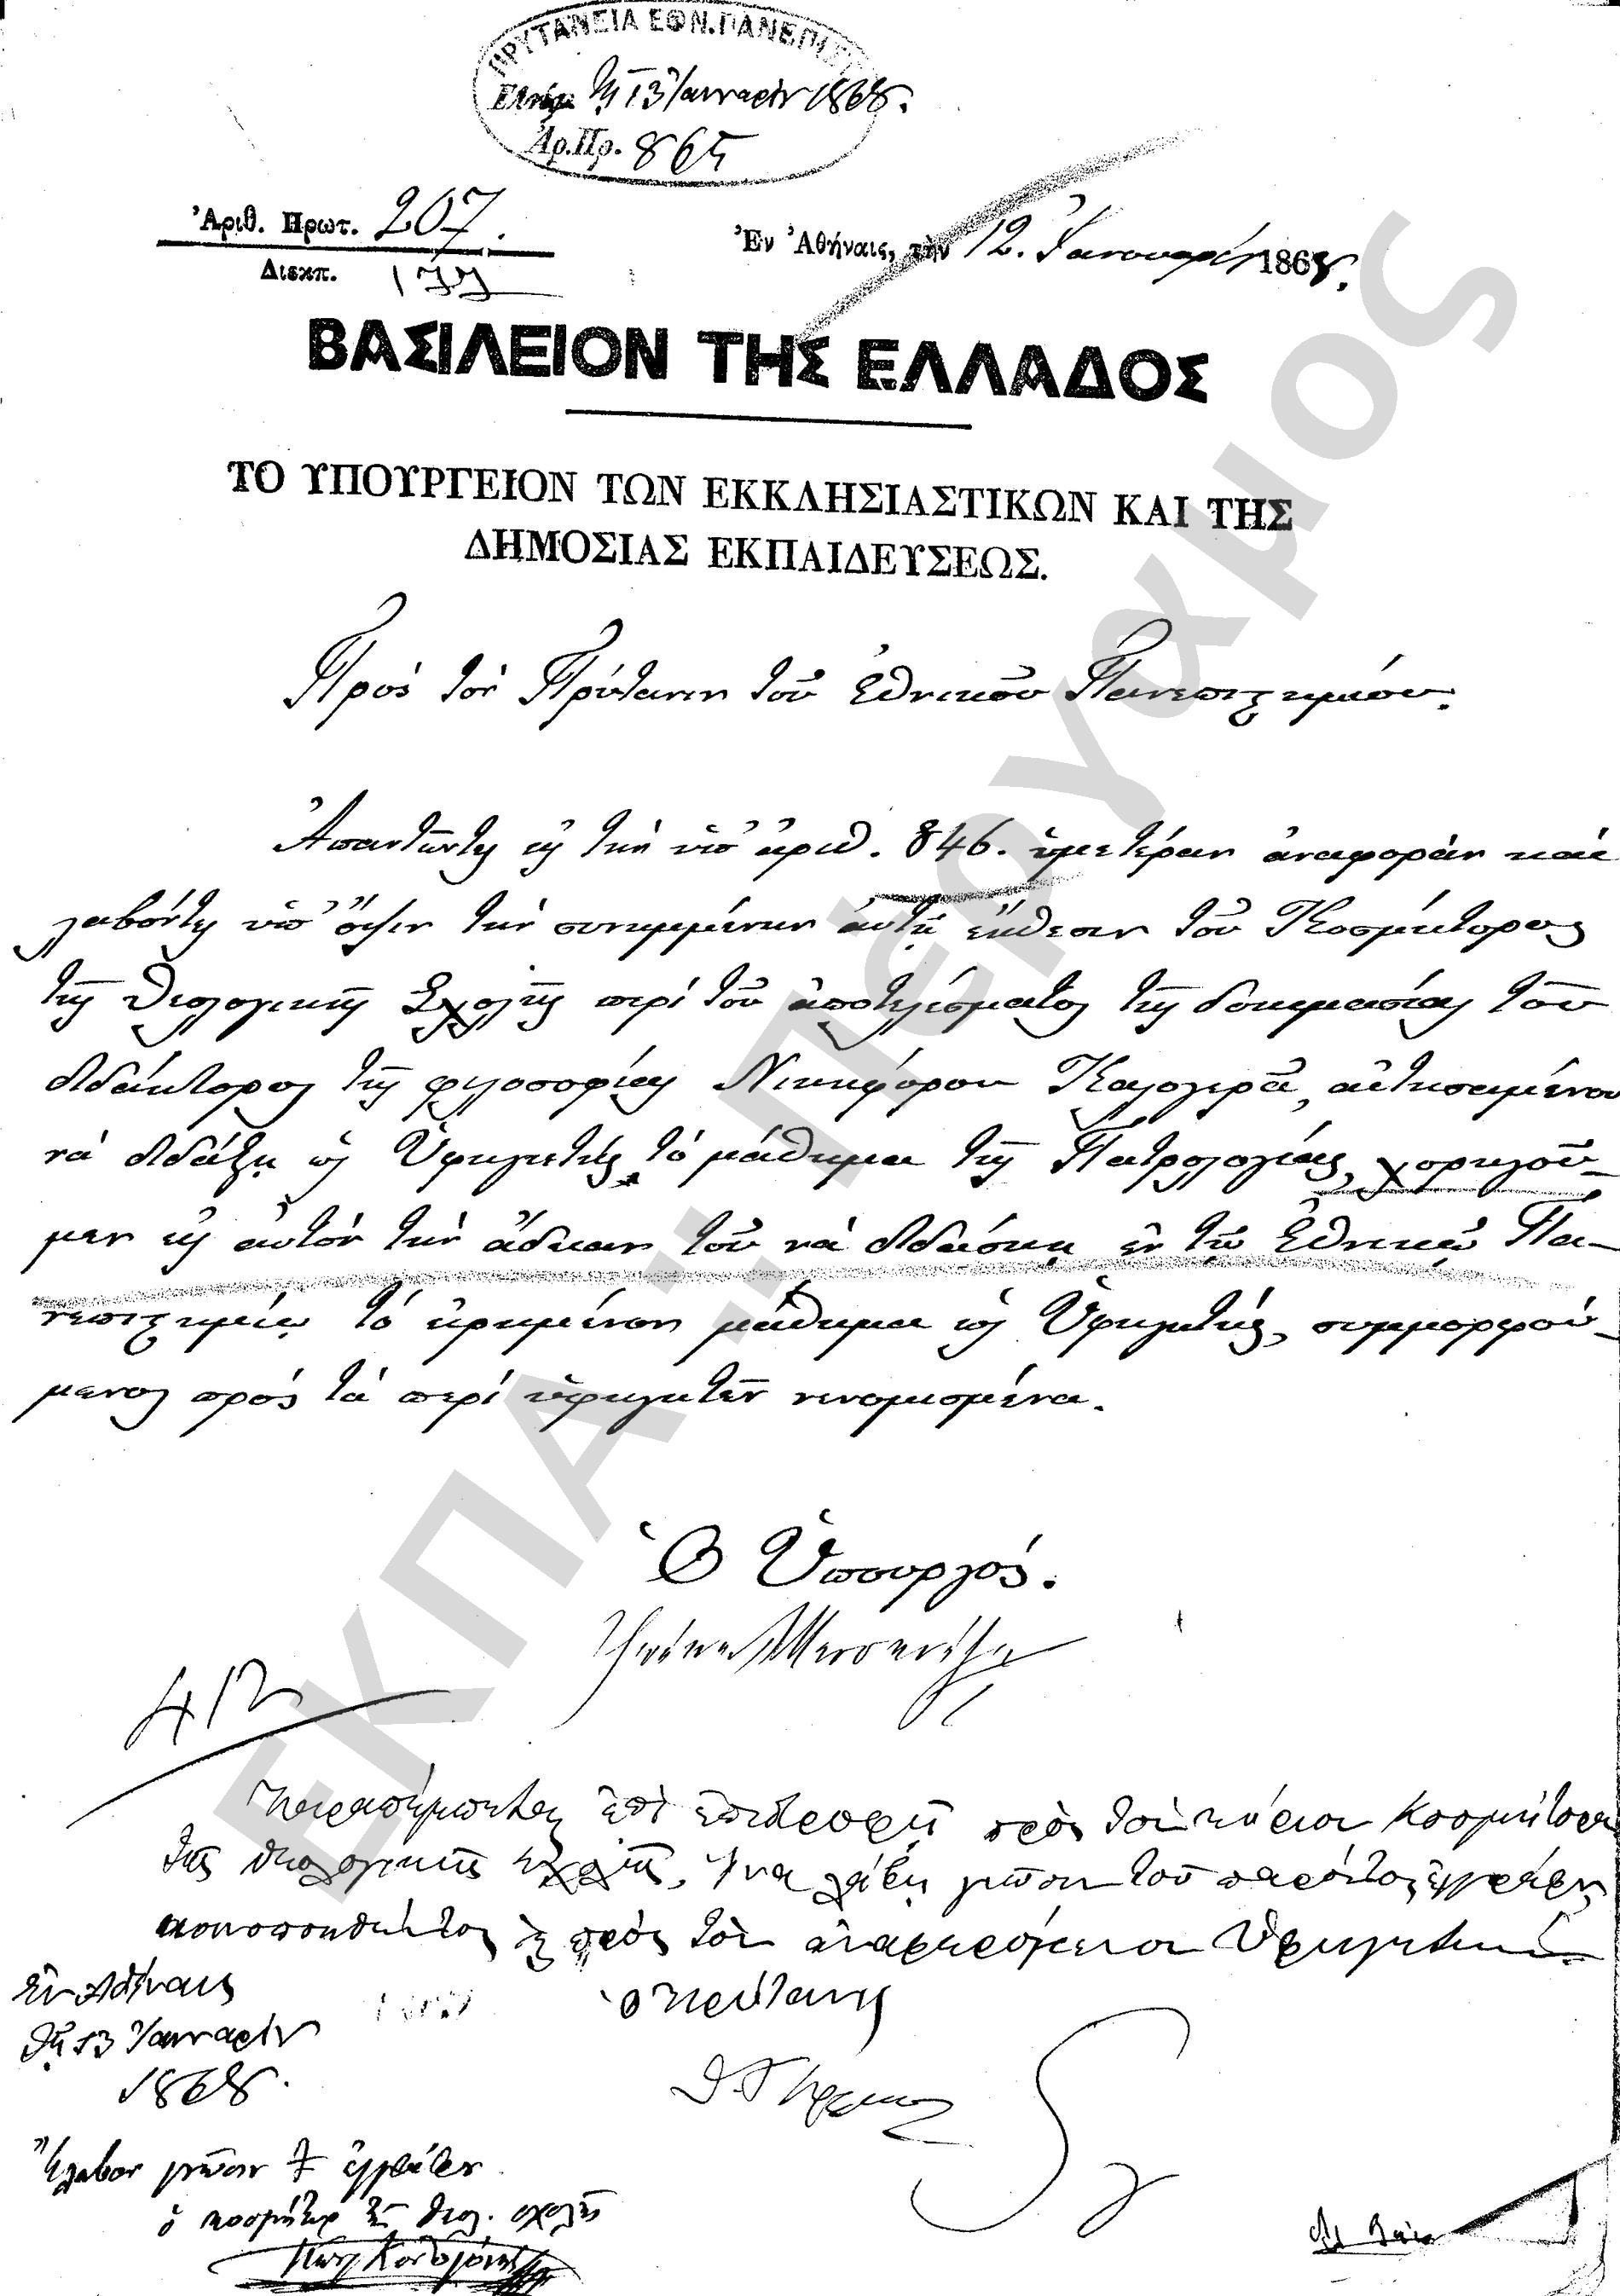 ΠΡΥΤΑΝΕΙΑ ΕΘΝ. ΠΑΝΕΠΙΣ
Ἐλήφ. τῇ 13 Ἰανναρίου 1868.
Ἀρ. Πρ. 865
Ἀριθ. Πρωτ. 207.
Διεκπ. 177
Ἐν Ἀθήναις, τὴν 12. Ἰανουαρίου 1868.
ΒΑΣΙΛΕΙΟΝ ΤΗΣ ΕΛΛΑΔΟΣ
ΤΟ ΥΠΟΥΡΓΕΙΟΝ ΤΩΝ ΕΚΚΛΗΣΙΑΣΤΙΚΩΝ ΚΑΙ ΤΗΣ
ΔΗΜΟΣΙΑΣ ΕΚΠΑΙΔΕΥΣΕΩΣ.
Πρὸς τὸν Πρύτανιν τοῦ Ἐθνικοῦ Πανεπιστημίου.
Ἀπαντῶντες εἰς τὴν ὑπ' ἀριθ. 846. ὑμετέραν ἀναφορὰν καὶ
λαβόντες ὑπ' ὄψιν τὴν συνημμένην αὐτῇ ἔκθεσιν τοῦ Κοσμήτορος
τῆς Θεολογικῆς Σχολῆς περὶ τοῦ ἀποτελέσματος τῆς δοκιμασίας τοῦ
διδάκτορος τῆς φιλοσοφίας Νικηφόρου Καλογερᾶ, αἰτησαμένου
νὰ διδάξῃ ὡς Ὑφηγητὴς τὸ μάθημα τῆς Πατρολογίας, χορηγοῦ-
μεν εἰς αὐτὸν τὴν ἄδειαν τοῦ νὰ διδάσκῃ ἐν τῷ Ἐθνικῷ Πα-
νεπιστημίῳ τὸ εἰρημένον μάθημα ὡς Ὑφηγητὴς, συμμορφού-
μενος πρὸς τὰ περὶ ὑφηγητῶν νενομισμένα.
Ὁ Ὑπουργός.
Παραπέμπεται ἐπὶ ἐπιστροφῇ πρὸς τὸν κύριον Κοσμήτορα
τῆς θεολογικῆς σχολῆς, ἵνα λάβῃ γνῶσιν τοῦ παρόντος ἐγγράφου
κοινοποιηθέντος καὶ πρὸς τὸν ἀναφερόμενον Ὑφηγητήν.
Ἐν Ἀθήναις
τῇ 13 Ἰανναρίου
1868.
ὁ Πρύτανις
Ἔλαβον γνῶσιν τ ἐγγράφου
ὁ κοσμήτωρ τῆς θεολ. σχολῆς
ΕΚΠΑ - ΠΕΡΓΑΜΟΣ